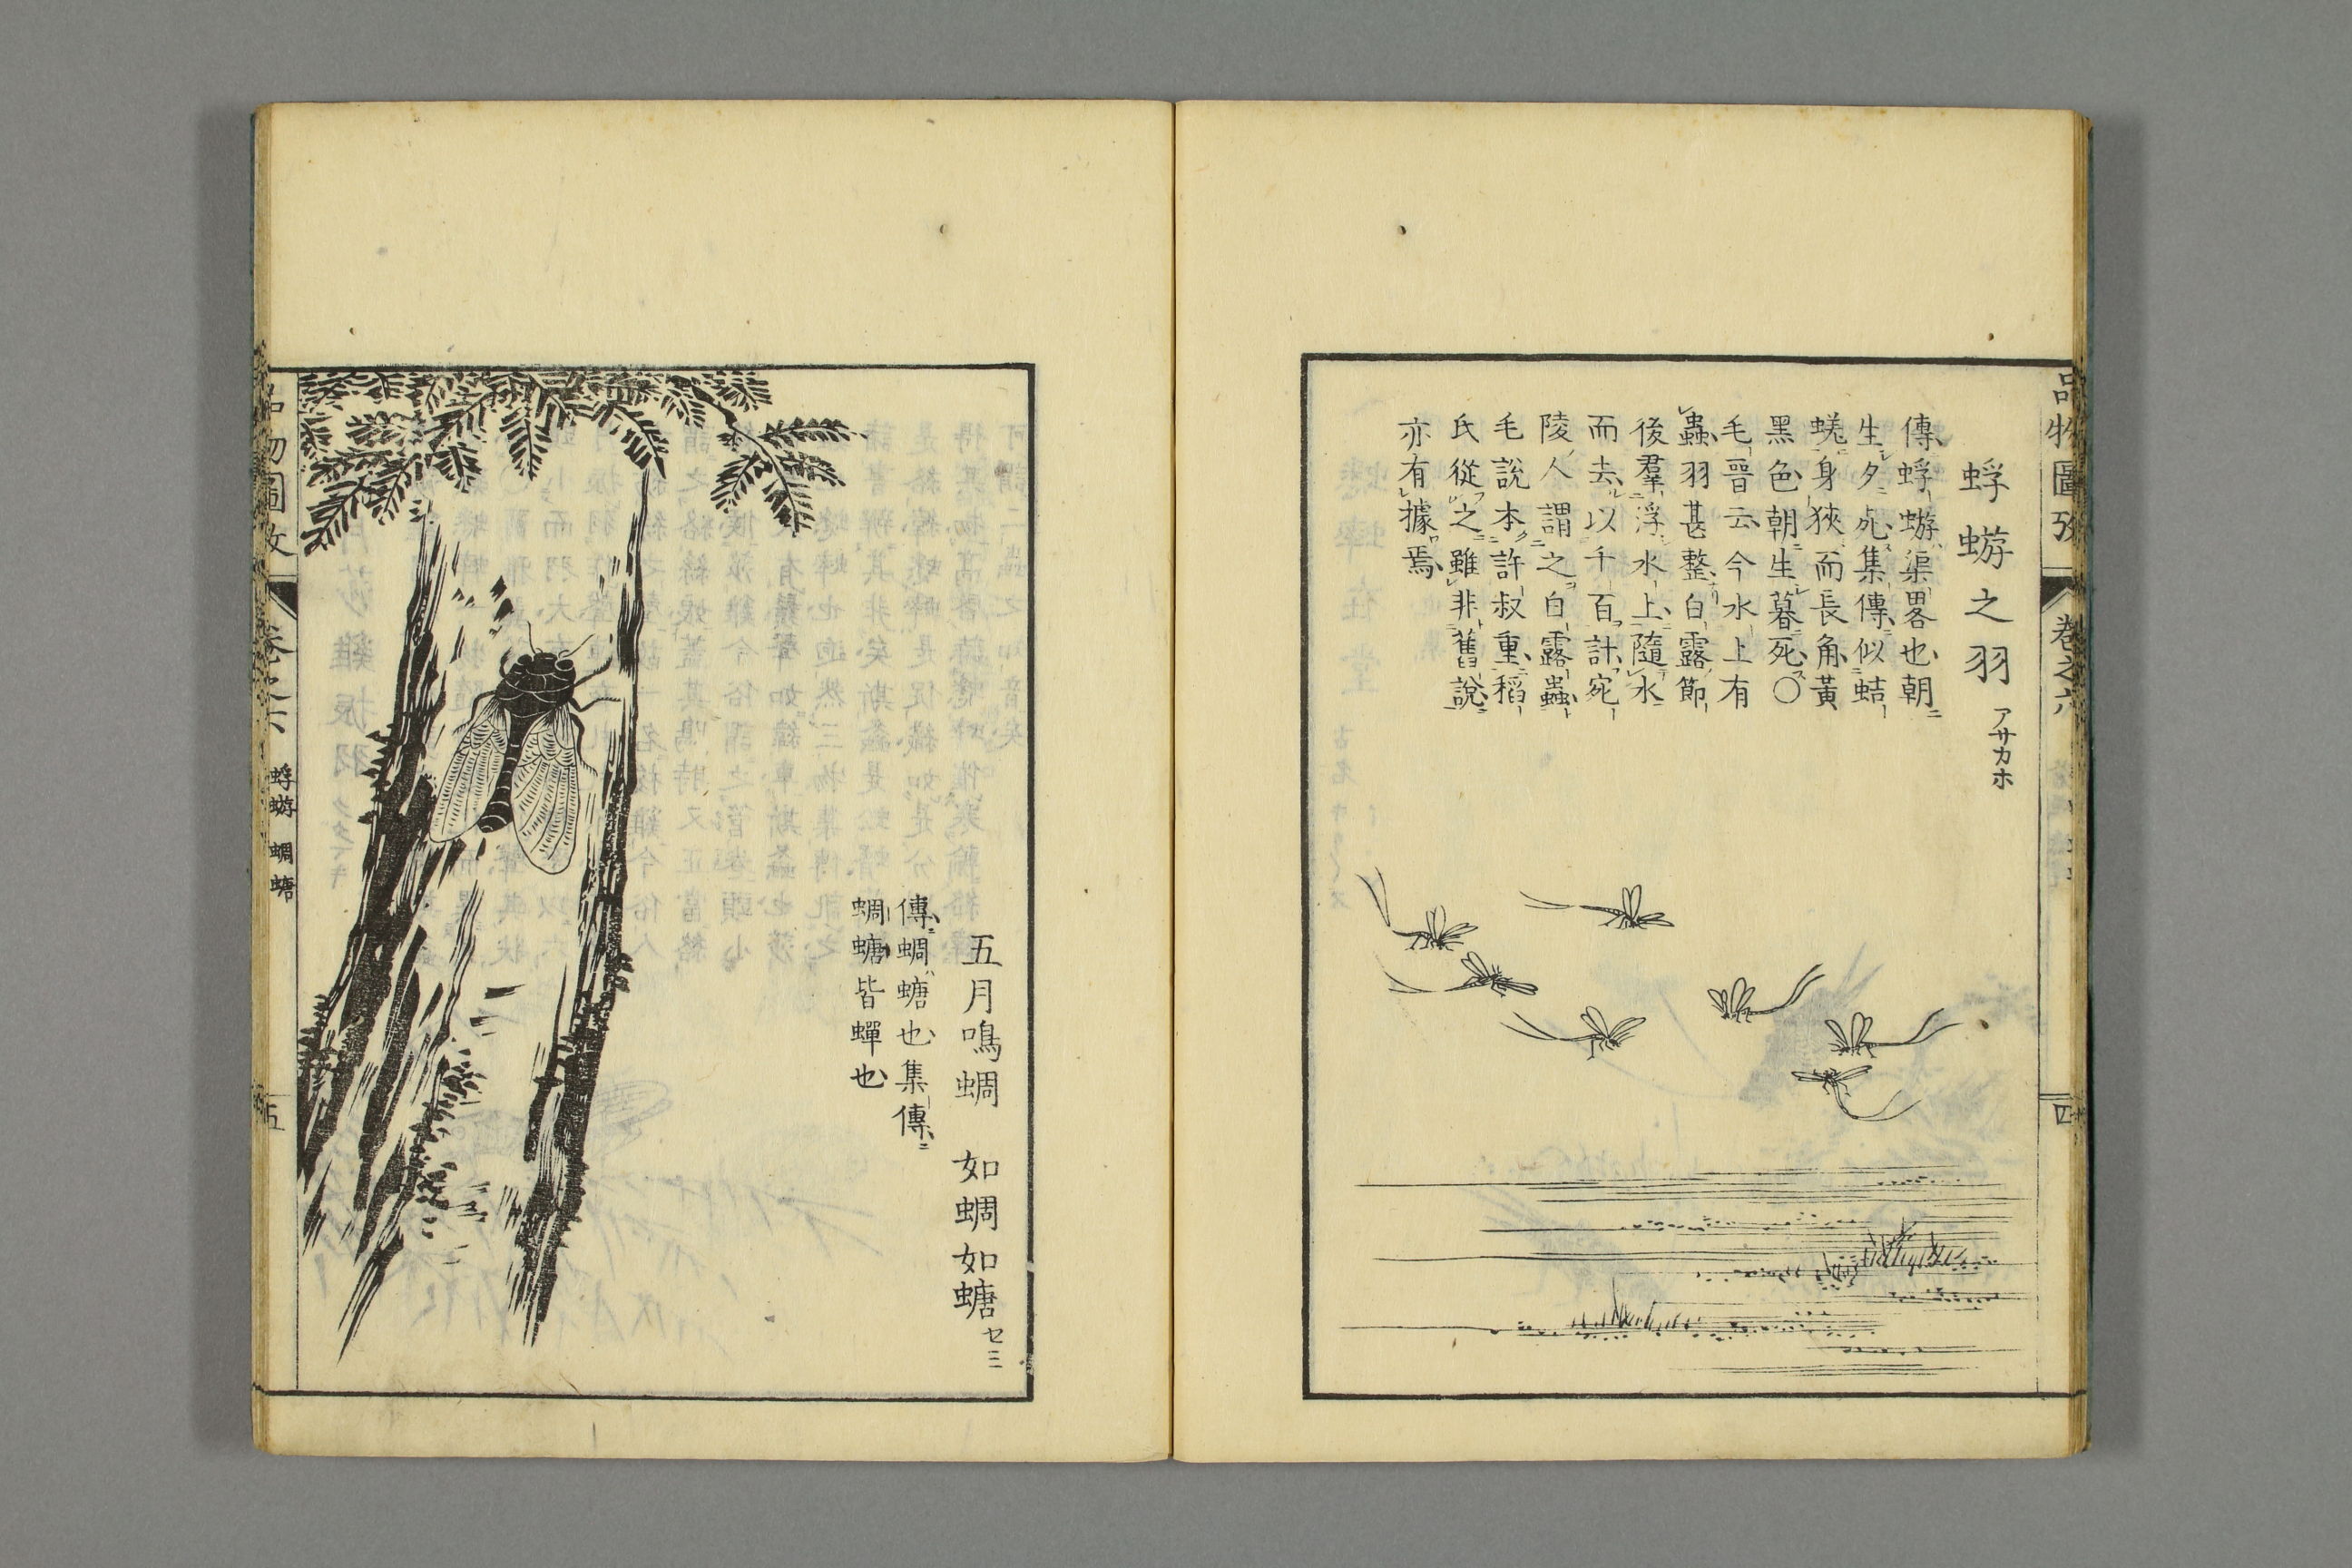 品物圖攷 卷之六 四
蜉蝣之羽 アサカホ
傳蜉蝣渠畧也朝
生夕死集傳似蛣
蜣身狹而長角黃
黑色朝生暮死○
毛晉云今水上有
蟲羽甚整白露節
後羣浮水上隨水
而去以千百計宛
陵人謂之白露蟲
毛說本許叔重稻
氏從之雖非舊說
亦有據焉
五月鳴蜩 如蜩如螗 セミ
傳蜩螗也集傳
蜩螗皆蟬也
品物圖攷 卷之六 蜉蝣 蜩螗 五